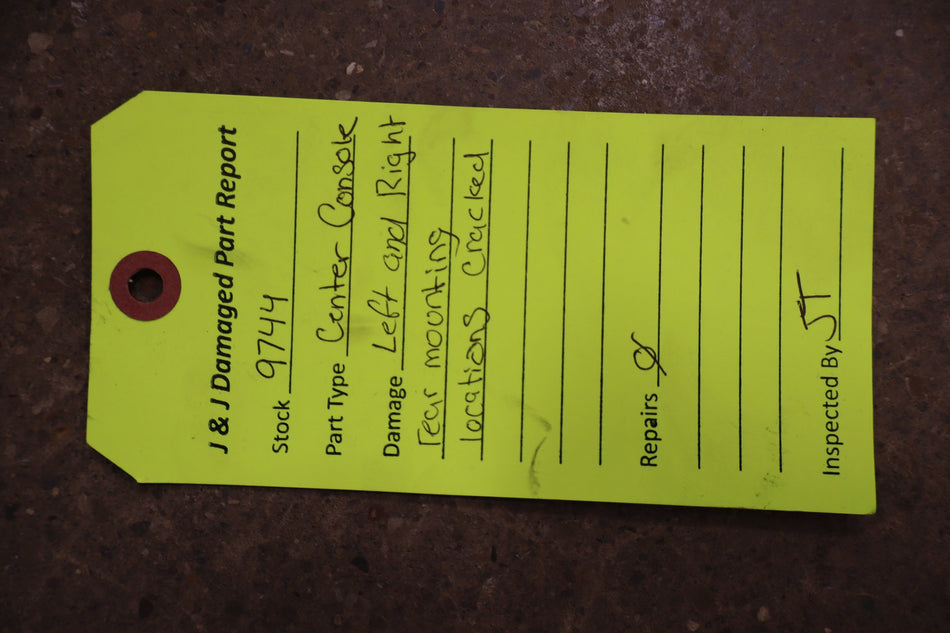 J & J Damaged Part Report
Stock 9744
Part Type Center Console
Damage Left and Right
rear mounting
locations cracked
Repairs Ø
Inspected By JT